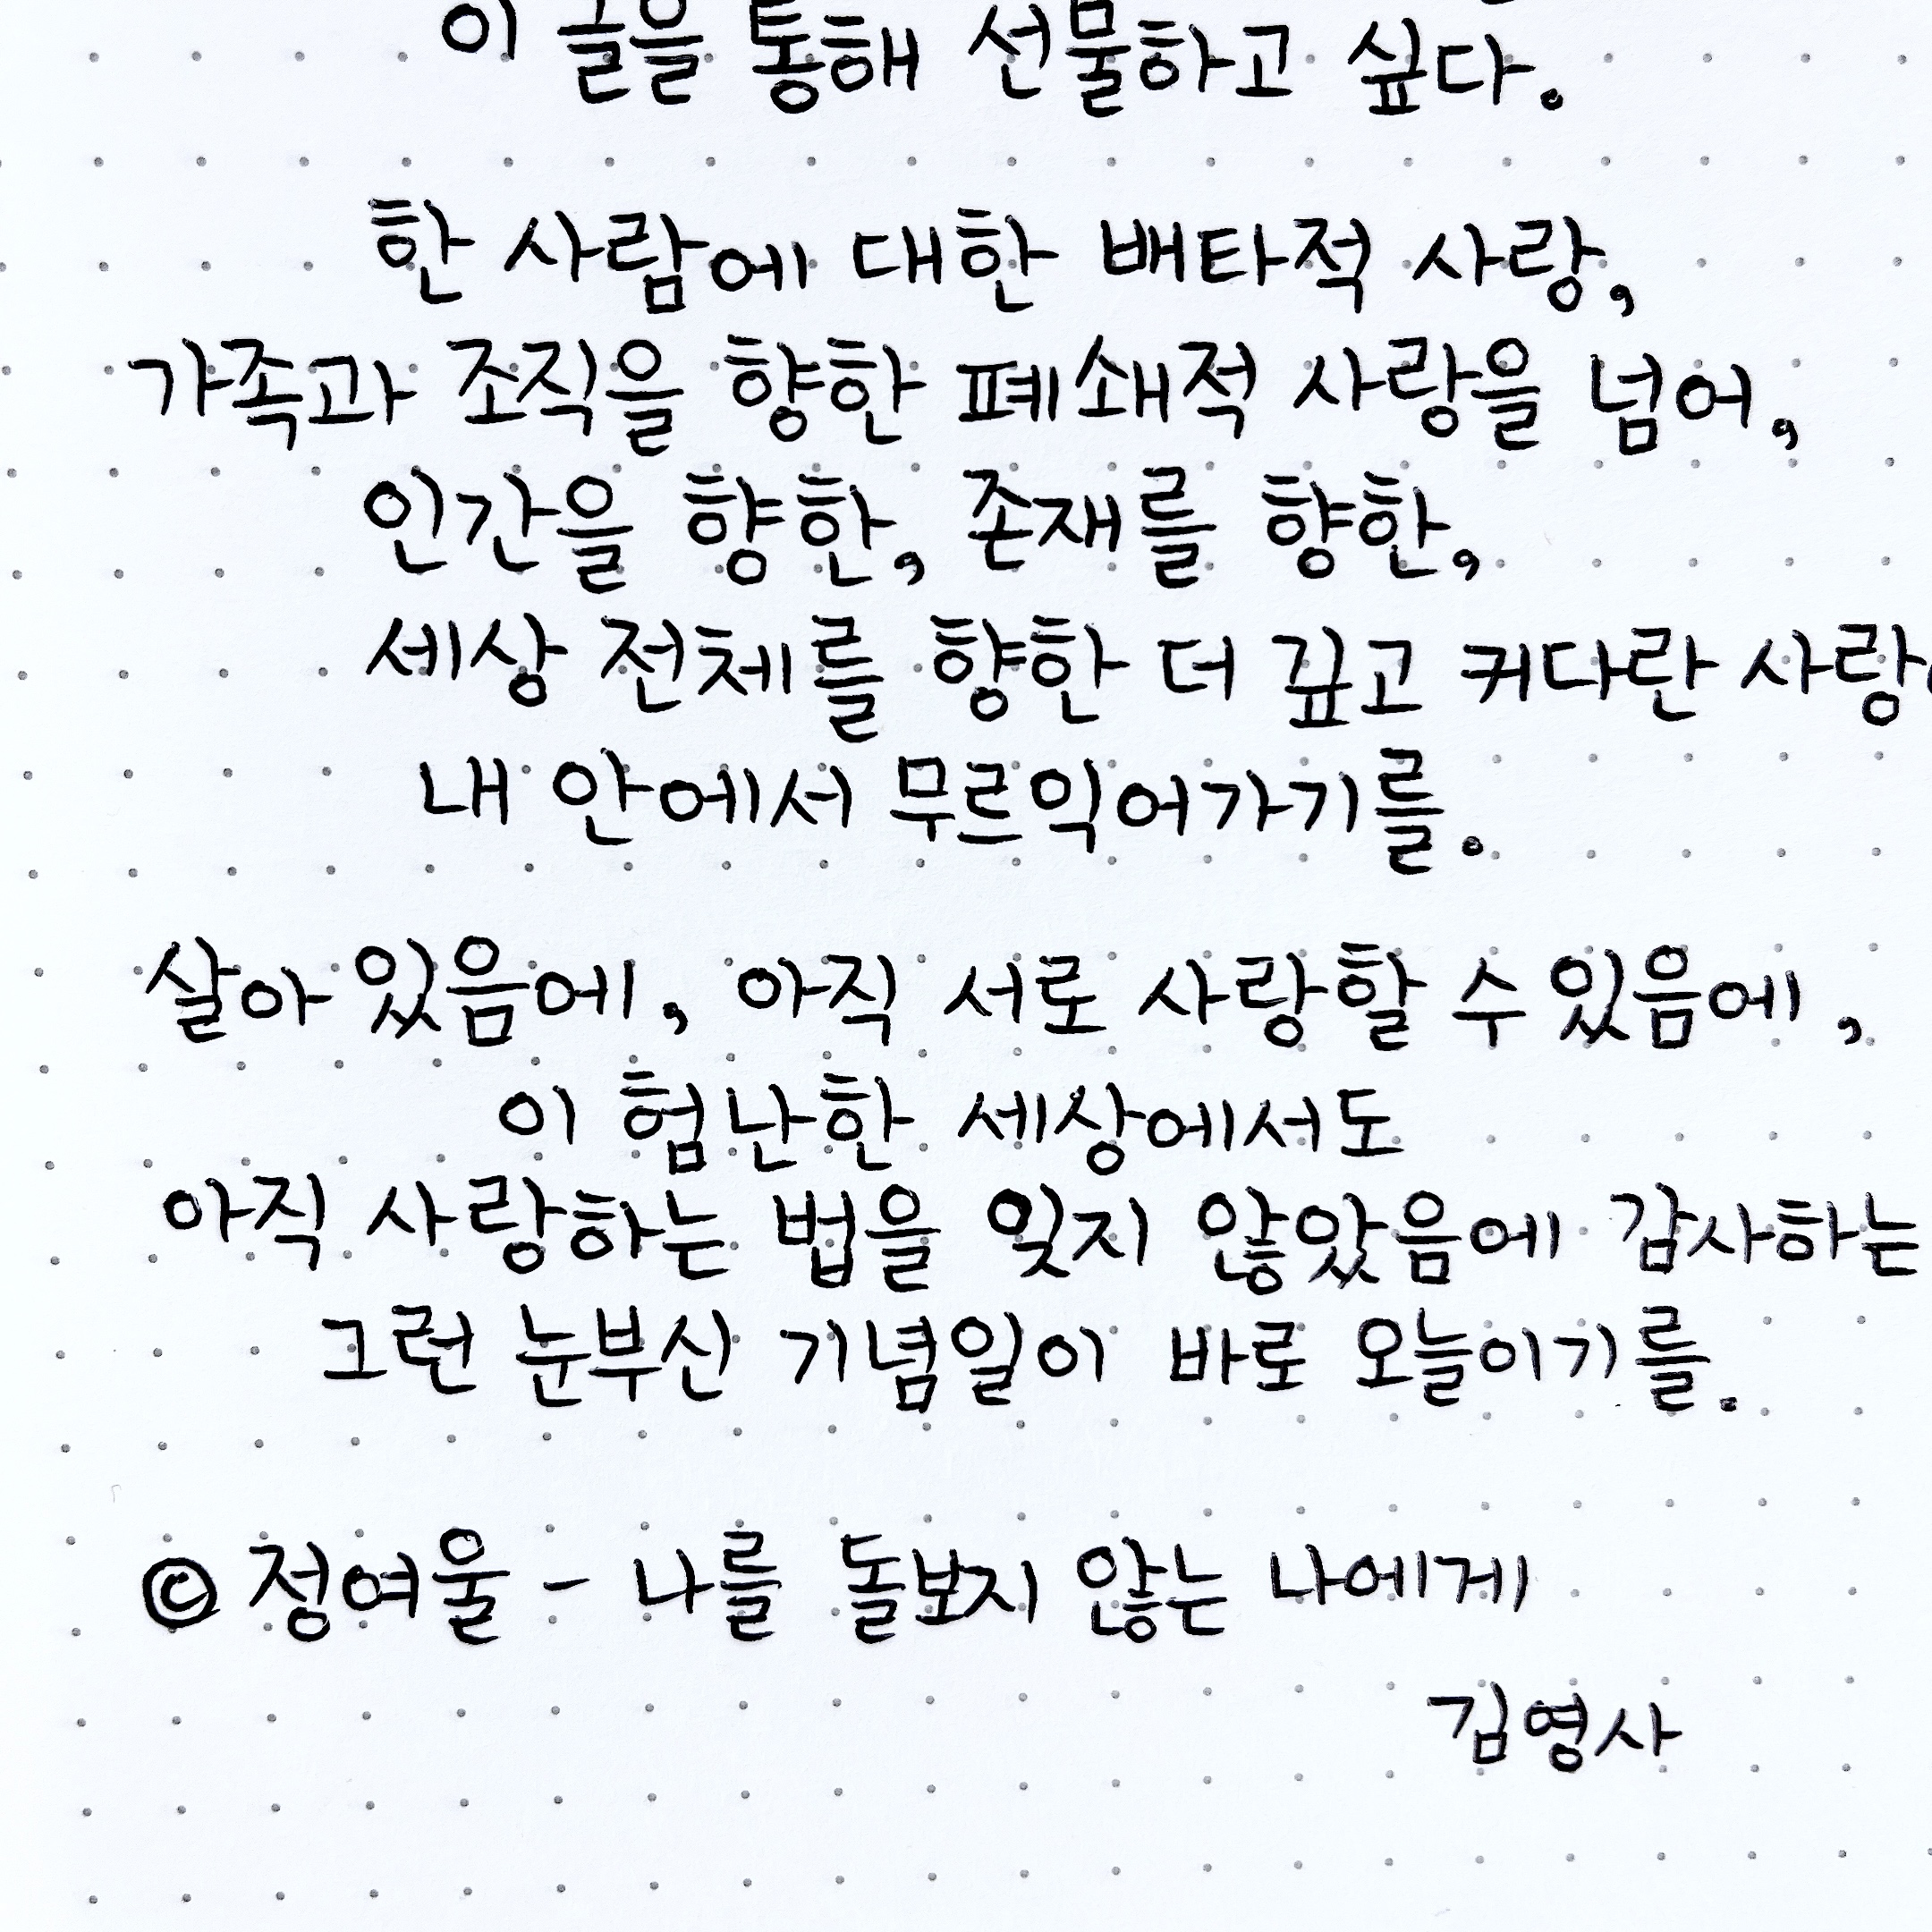 이 글을 통해 선물하고 싶다.
한 사람에 대한 배타적 사랑,
가족과 조직을 향한 폐쇄적 사랑을 넘어,
인간을 향한, 존재를 향한,
세상 전체를 향한 더 깊고 커다란 사랑
내 안에서 무르익어가기를.
살아 있음에, 아직 서로 사랑할 수 있음에,
이 험난한 세상에서도
아직 사랑하는 법을 잊지 않았음에 감사하는
그런 눈부신 기념일이 바로 오늘이기를.
© 정여울 - 나를 돌보지 않는 나에게
김영사